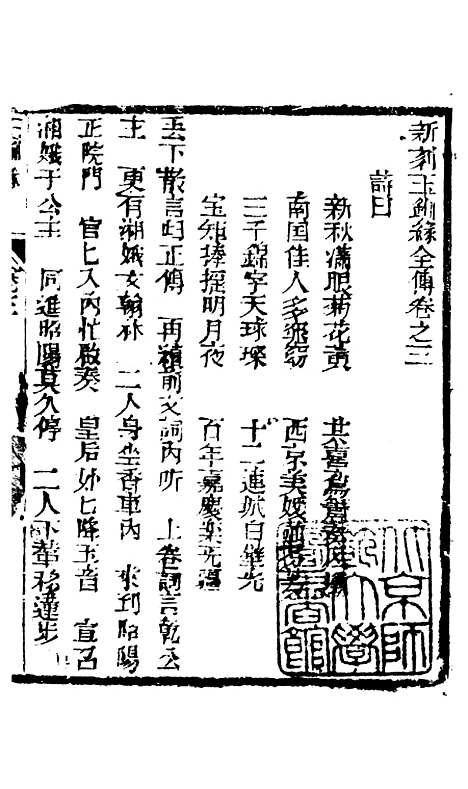 新刻玉釧緣全傳卷之三
詩曰
新秋滿眼菊花黃 共喜
南国佳人多窈窕 西京美
三千錦字天球璨 十二連城白璧光
宝炬捧擺明月夜 百年嘉慶樂无疆
丟下散言归正傳 再續前文詞內听 上卷詞言乾公
主 更有湘娥女翰林 二人身坐香車內 來到昭陽
正院門 官匕入內忙啟奏 皇后妙匕降玉音 宣召
湘娥于公主 同進昭陽莫久停 二人下輦移蓮步